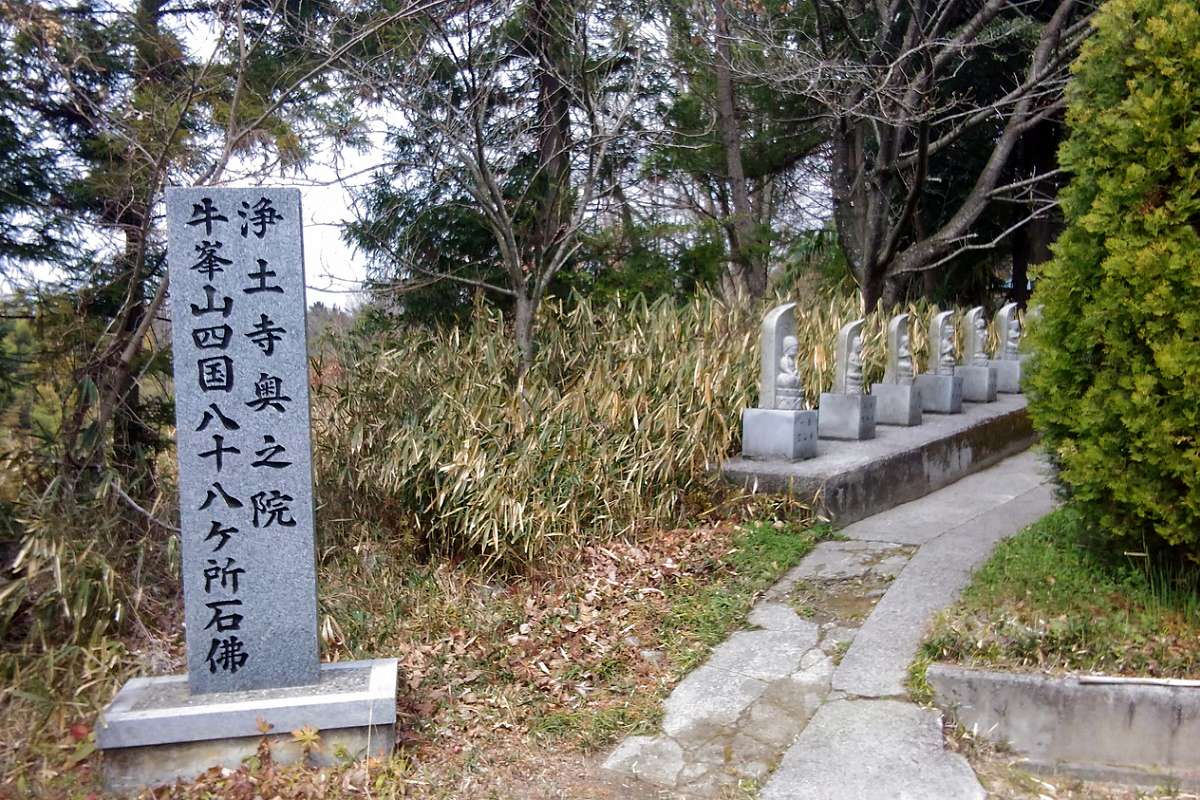 浄土寺奥之院
牛峯山四国八十八ケ所石佛